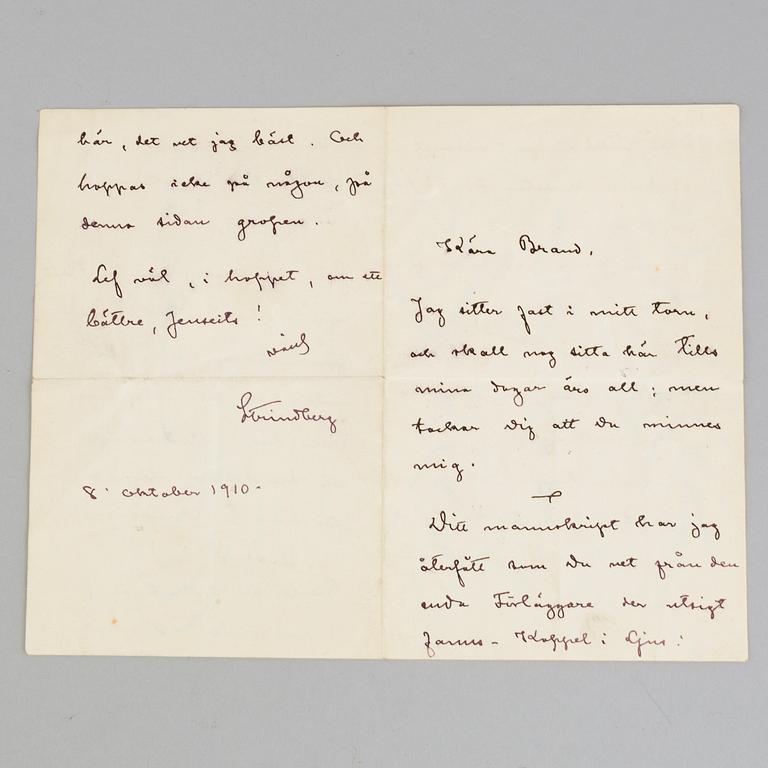 Kära Brand,
Jag sitter fast i mitt torn,
och skall nog sitta här tills
mina dagar äro all; men
tackar Dig att Du minnes
mig.
Ditt manuskript har jag
återfått som Du vet från den
enda Förläggare der utsigt
fanns - Koppel i Ljus!
här, det vet jag bäst. Och
hoppas icke på någon, på
denna sidan grafven.
Lef väl, i hoppet, om ett
bättre, Jenseits!
vän
Strindberg
8. oktober 1910-